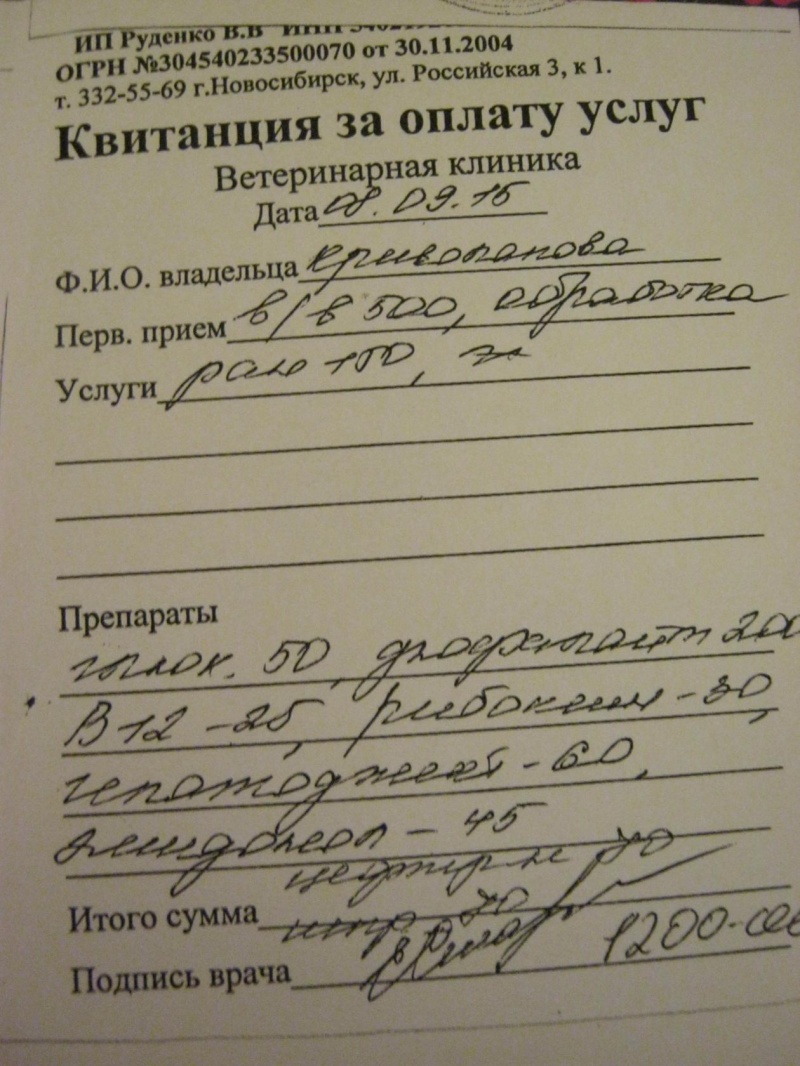 ИП Руденко В.В ИНН
ОГРН №304540233500070 от 30.11.2004
т. 332-55-69 г.Новосибирск, ул. Российская 3, к 1.
Квитанция за оплату услуг
Ветеринарная клиника
Дата 08.09.15
Ф.И.О. владельца Криволапова
Перв. прием в/в 500, обработка
Услуги ран 150,
Препараты
глюк. 50, 200
В12 - 25, рибоксин - 30,
гепатоджект - 60,
эмидонол - 45
70
Итого сумма 70
Подпись врача 1200-